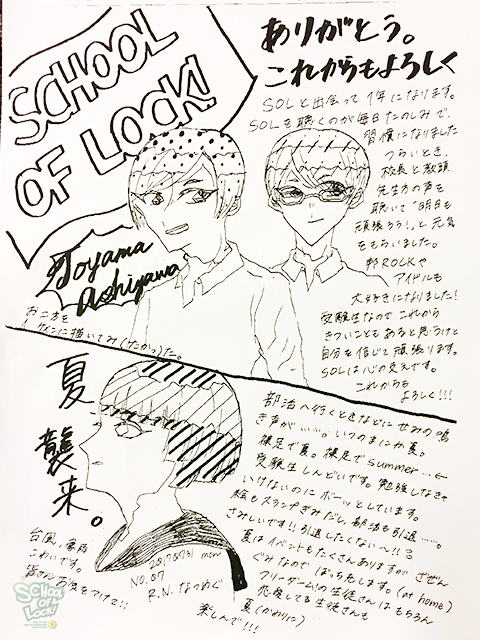 SCHOOL
OF LOCK!
ありがとう。
これからもよろしく
SOLと出会って1年になります。
SOLを聴くのが毎日たのしみで、
習慣になりました
つらいとき、
校長と教頭、
先生方の声を
聴いて“明日も
頑張ろう!”と元気
をもらいました。
邦ROCKや
アイドルも
大好きになりました!
受験生なので これから
きついこともあると思うけど
自分を信じて頑張ります。
SOLは心の支えです。
これからも
よろしく!!!
Toyama
Ashizawa
お二方を
イケメンに描いてみ(たかっ)た。
夏
襲
来。
部活へ行くときなどに せみの鳴
き声が……。いつのまにか夏。
裸足で夏。裸足でsummer…←
受験生しんどいです。勉強しなきゃ
いけないのに ボーッとしています。
絵もスランプぎみだし、部活も引退……。
さみしいです!!引退したくない〜!!
夏はイベントもたくさんありますが ざぜん
ぐみなので ぼっち充します。(at home)
フリーダム!の生徒さんは もちろん
充復してる生徒さんも
夏(かわりに)
楽しんで!!!
台風、豪雨
こわいです。
皆さん お気をつけて!!
20170731 mon
NO.07
R.N. なつめぐ
SCHOOL
OF
LOCK!